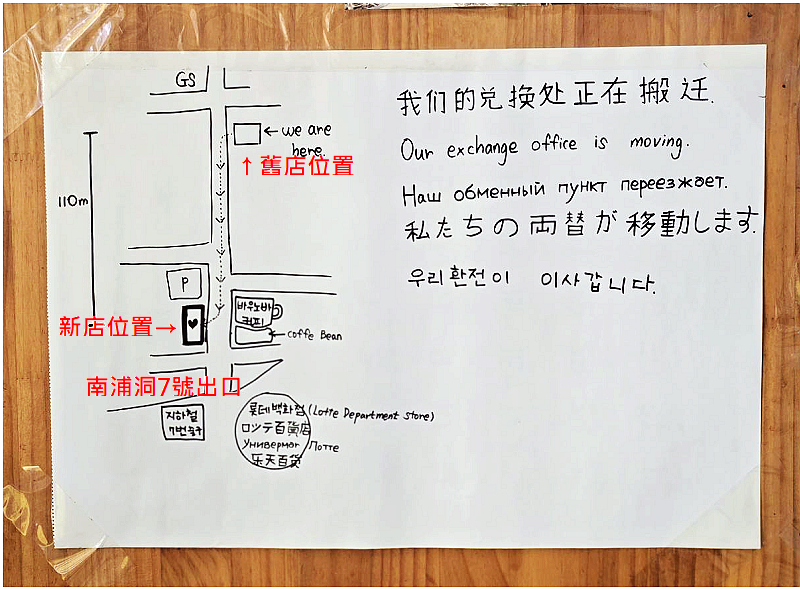 GS
← we are
here.
↑舊店位置
110m
P
新店位置→
♥
바우노바
커피
← coffe Bean
南浦洞7號出口
지하철
7번출구
롯데백화점 (Lotte Department Store)
ロッテ百貨店
Универмаг Лотте
乐天百货
我们的兑换处正在搬迁.
Our exchange office is moving.
Наш обменный пункт переезжает.
私たちの両替が移動します.
우리환전이 이사갑니다.